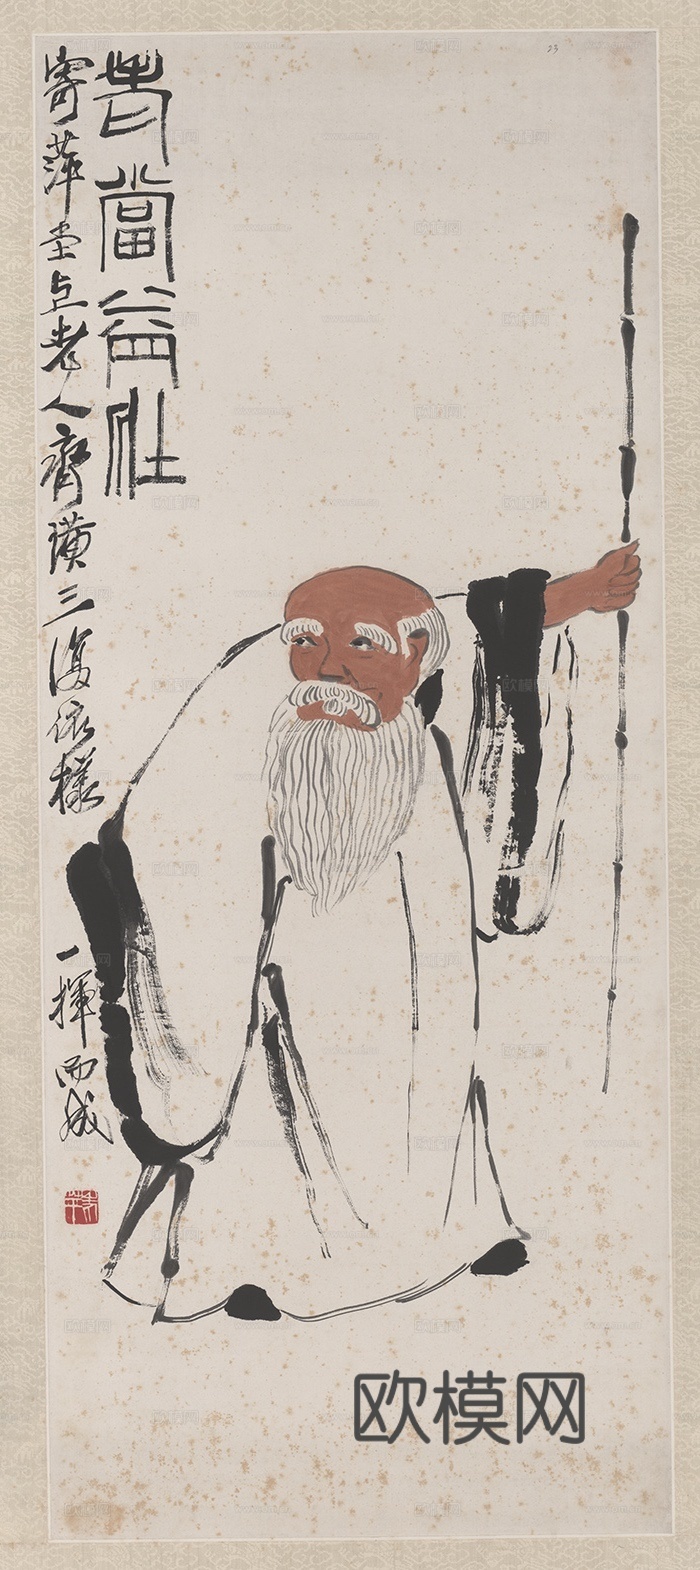 老當益壯
寄萍堂上老人齊璜三復依樣
一揮而成
23
欧模网